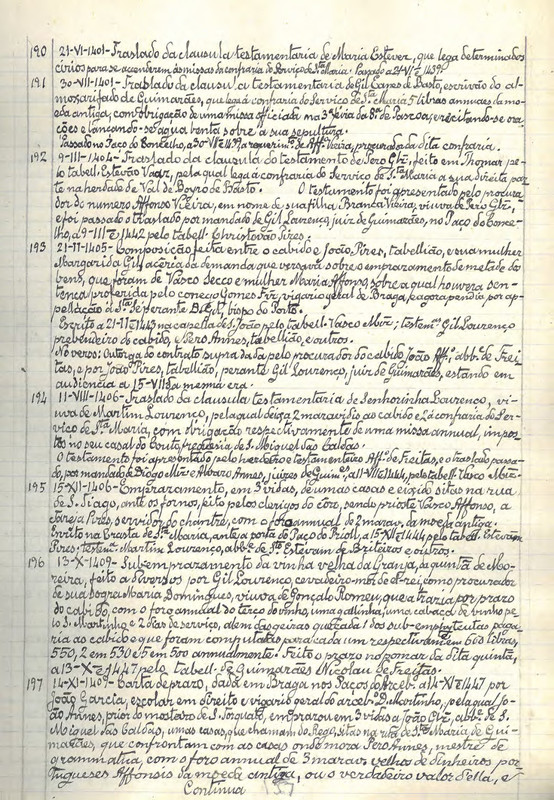 190 21-VI-1401-Traslado da clausula testamentaria de Maria Estevez, que lega determinados
cirios para se acenderem ás missas da confraria do Serviço de Sta Maria. Passado a 21-VI-E 1439.
191 30-VII-1401-Traslado da clausula testamentaria de Gil Eanes de Basto, escrivão do al-
moxarifado de Guimarães, que lega á confraria do Serviço de Sta Maria 5 libras annuaes da moe-
da antiga, com obrigação de uma missa officiada na 3ª feira da 8ª de Pascoa, e recitando-se ora-
ções e lançando-se agua benta sobre a sua sepultura.
Passado no Paço do Concelho, a 30-VII-E 1439, a requerimto de Affº Vieira, procurador da dita confraria.
192 9-III-1404-Traslado da clausula do testamento de Pero Glz, feito em Thomar pe-
lo tabell. Estevão Vaaz, pela qual lega á confraria do Serviço de S. Maria a sua direita par-
te na herdade de Val de Boyro de Basto. O testamento foi apresentado pelo procura-
dor do numero Affonso Vieira, em nome de sua filha Branca Vieira, viuva de Pero Glz,
e foi passado o traslado por mandado de Gil Lourenço, juiz de Guimarães, no Paço do Conce-
lho, a 9-III-E 1442 pelo tabell. Christovão Pires.
193 21-II-1405-Composição feita entre o cabido e João Pires, tabellião, e sua mulher
Margarida Gil, ácerca da demanda que versava sobre o emprazamento de metade dos
bens, que foram de Vasco Secco e mulher Maria Affonso, sobre a qual houvera sen-
tença proferida pelo conego Gomes Frz, vigario geral de Braga, e agora pendia por ap-
pellação de Sta Sé perante D. Gil, bispo do Porto.
Escrito a 21-II-E 1443 na capella de S. João pelo tabell. Vasco Miz; testemas Gil Lourenço
prebendeiro do cabido, Pero Annes, tabellião, e outros.
No verso: Outorga do contrato supra dada pelo procurador do cabido João Affº, abbe de Frei-
tas, e por João Pires, tabellião, perante Gil Lourenço, juiz de Guimarães, estando em
audiencia a 15-VII da mesma era.
194 11-VIII-1406-Traslado da clausula testamentaria de Senhorinha Lourenço, vi-
uva de Martim Lourenço, pela qual deixa 2 maravidis ao cabido e 2 á confraria do Ser-
viço de Sta Maria, com obrigação respectivamente de uma missa annual, impos-
tos no seu casal do Couto, freguesia de S. Miguel das Caldas.
O testamento foi apresentado pelo herdeiro e testamenteiro Affº de Freitas, e o traslado passa-
do, por mandado de Diogo Miz e Alvaro Annes, juizes de Guimes, a 11-VIII-E 1444, pelo tabell. Vasco Miz.
195 15-XII-1406-Emprazamento, em 3 vidas, de umas casas e eixido sitas na rua
de S. Tiago, ante os fornos, feito pelos clerigos do coro, sendo prioste Vasco Affonso, a
Sareja Pires, servidor do chantre, com o foro annual de 2 marav. da moeda antiga.
Escrito na Crasta de Sta Maria, ante a porta do Paço do Priol, a 15-XII-E 1444 pelo tabell. Estevam
Pires. testem. Martim Lourenço, abbe de S. Estevam de Briteiros e outros.
196 13-X-1409-Subemprazamento da vinha velha da Granja, da quintã de Mo-
reira, feito a diversos por Gil Lourenço, cevadeiro-mór de el-rei, como procurador
de sua sogra Maria Domingues, viuva de Gonçalo Romeu, que a trazia por prazo
do cabido, com o foro annual do terço do vinho, uma gallinha, uma cabaça de vinho pe-
lo S. Martinho e 2 dias de serviço, alem das geiras que cada 1 dos sub-emphyteutas paga-
ria ao cabido e que foram computadas para cada um respectivamte em 600 libras,
550, 2 em 530 e 5 em 500 annualmente. Feito o prazo no pomar da dita quinta,
a 13-X-E 1447 pelo tabell. de Guimarães Nicolau de Freitas.
197 14-XI-1409-Carta de prazo, dada em Braga nos Paços do Arceb. a 14-XI-E 1447 por
João Garcia, escolar em direito e vigario geral do arcebº D. Martinho, pela qual Jo-
ão Annes, prior do mosteiro de S. Torquato, emprazou em 3 vidas a João Glz, abbe de S.
Miguel das Caldas, umas casas, que chamam do Rego, sitas na rua de Sta Maria de Gui-
marães, que confrontam com as casas onde mora Pero Annes, mestre de
grammatica, com o foro annual de 3 marav. velhos de dinheiros por
tugueses Affonsis da moeda antiga, ou o verdadeiro valor della, e
Continua 137